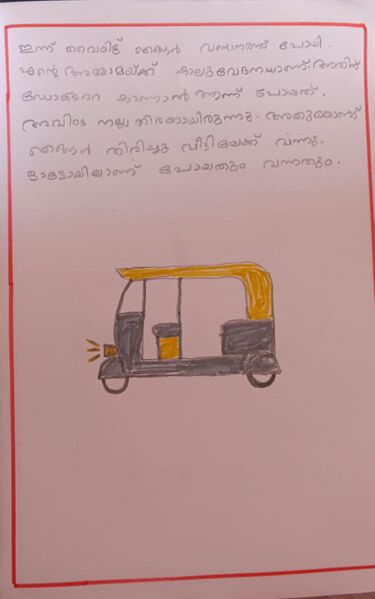 ഇന്ന് വൈകിട്ട് ഞങ്ങൾ വന്ദനത്ത് പോയി.
എന്റെ അമ്മാമയ്ക്ക് കാലുവേദനയാണ്. അതിന്
ഡോക്ടറെ കാണാൻ ആണ് പോയത്.
അവിടെ നല്ല തിരക്കായിരുന്നു. അതുകൊണ്ട്
ഞങ്ങൾ തിരിച്ചു വീട്ടിലേക്ക് വന്നു.
ഓട്ടോയിലാണ് പോയതും വന്നതും.